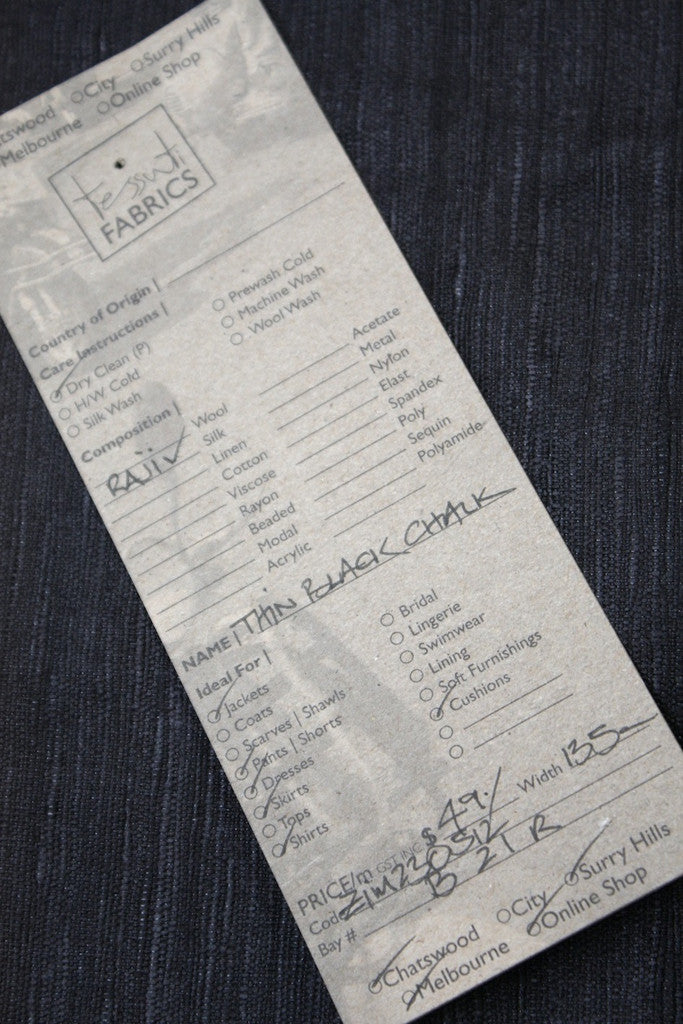 Chatswood City Surry Hills
Melbourne Online Shop
tessuti
FABRICS
Country of Origin |
Care Instructions |
Dry Clean (P) Prewash Cold
H/W Cold Machine Wash
Silk Wash Wool Wash
Composition |
Wool Acetate
Silk Metal
Linen Nylon
Cotton Elast
Viscose Spandex
Rayon Poly
Beaded Sequin
Modal Polyamide
Acrylic
NAME | THIN BLACK CHALK
Ideal For |
Jackets Bridal
Coats Lingerie
Scarves | Shawls Swimwear
Pants | Shorts Lining
Dresses Soft Furnishings
Skirts Cushions
Tops
Shirts
PRICE/m GST INC $ 49./ Width 135
Code ZIM220512
Bay # B 21 R
Chatswood City Surry Hills
Melbourne Online Shop